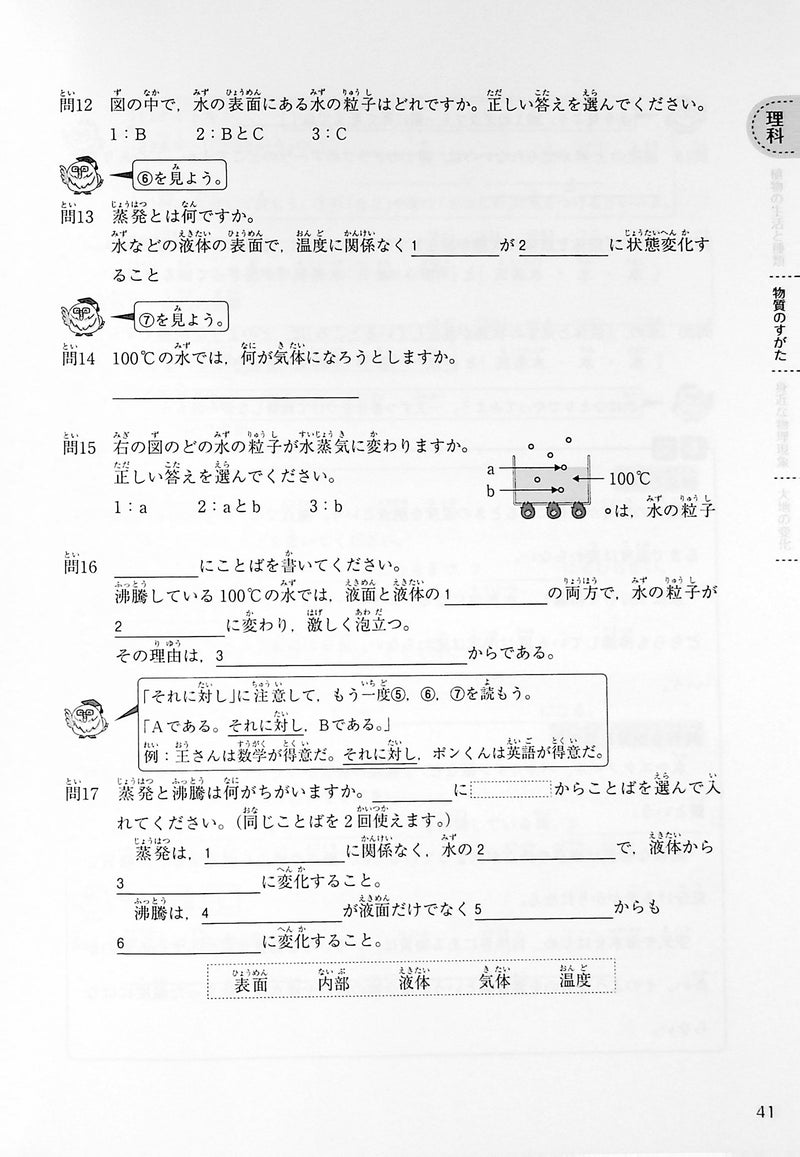 問12 図の中で，水の表面にある水の粒子はどれですか。正しい答えを選んでください。
1：B 2：BとC 3：C
⑥を見よう。
問13 蒸発とは何ですか。
水などの液体の表面で，温度に関係なく1 が2 に状態変化す
ること
⑦を見よう。
問14 100℃の水では，何が気体になろうとしますか。
問15 右の図のどの水の粒子が水蒸気に変わりますか。
正しい答えを選んでください。
1：a 2：aとb 3：b
a
b
100℃
○は，水の粒子
問16 にことばを書いてください。
沸騰している100℃の水では，液面と液体の1 の両方で，水の粒子が
2 に変わり，激しく泡立つ。
その理由は，3 からである。
「それに対し」に注意して，もう一度⑤，⑥，⑦を読もう。
「Aである。それに対し，Bである。」
例：王さんは数学が得意だ。それに対し，ポンくんは英語が得意だ。
問17 蒸発と沸騰は何がちがいますか。 に からことばを選んで入
れてください。（同じことばを2回使えます。）
蒸発は，1 に関係なく，水の2 で，液体から
3 に変化すること。
沸騰は，4 が液面だけでなく5 からも
6 に変化すること。
表面 内部 液体 気体 温度
理科
植物の生活と種類
物質のすがた
身近な物理現象
大地の変化
41